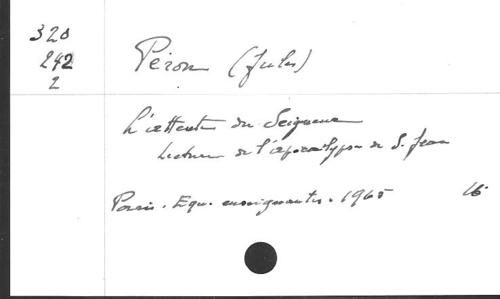 320
242
2
Péron (Jules)
L'attente du Seigneur
Lecture de l'apocalypse de S. Jean
Paris. Equ. enseignantes. 1965 16°